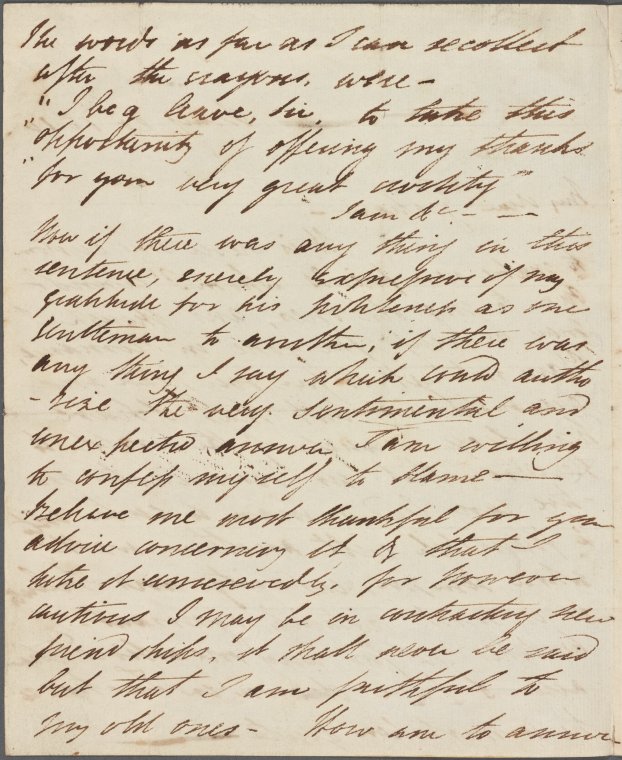 The words as far as I can recollect
after the crayons, were -
"I beg leave, Sir, to take this
"opportunity of offering my thanks
"for your very great civility"
I am &c - -
Now if there was any thing in this
sentence, merely expressive of my
gratitude for his politeness as one
Gentleman to another, if there was
any thing I say which could autho
-rize the very sentimental and
unexpected answer I am willing
to confess myself to blame -
Believe me most thankful for your
advice concerning it & that I
take it unreservedly, for however
cautious I may be in contracting new
friendships, it shall never be said
but that I am faithful to
my old ones - How am to answer